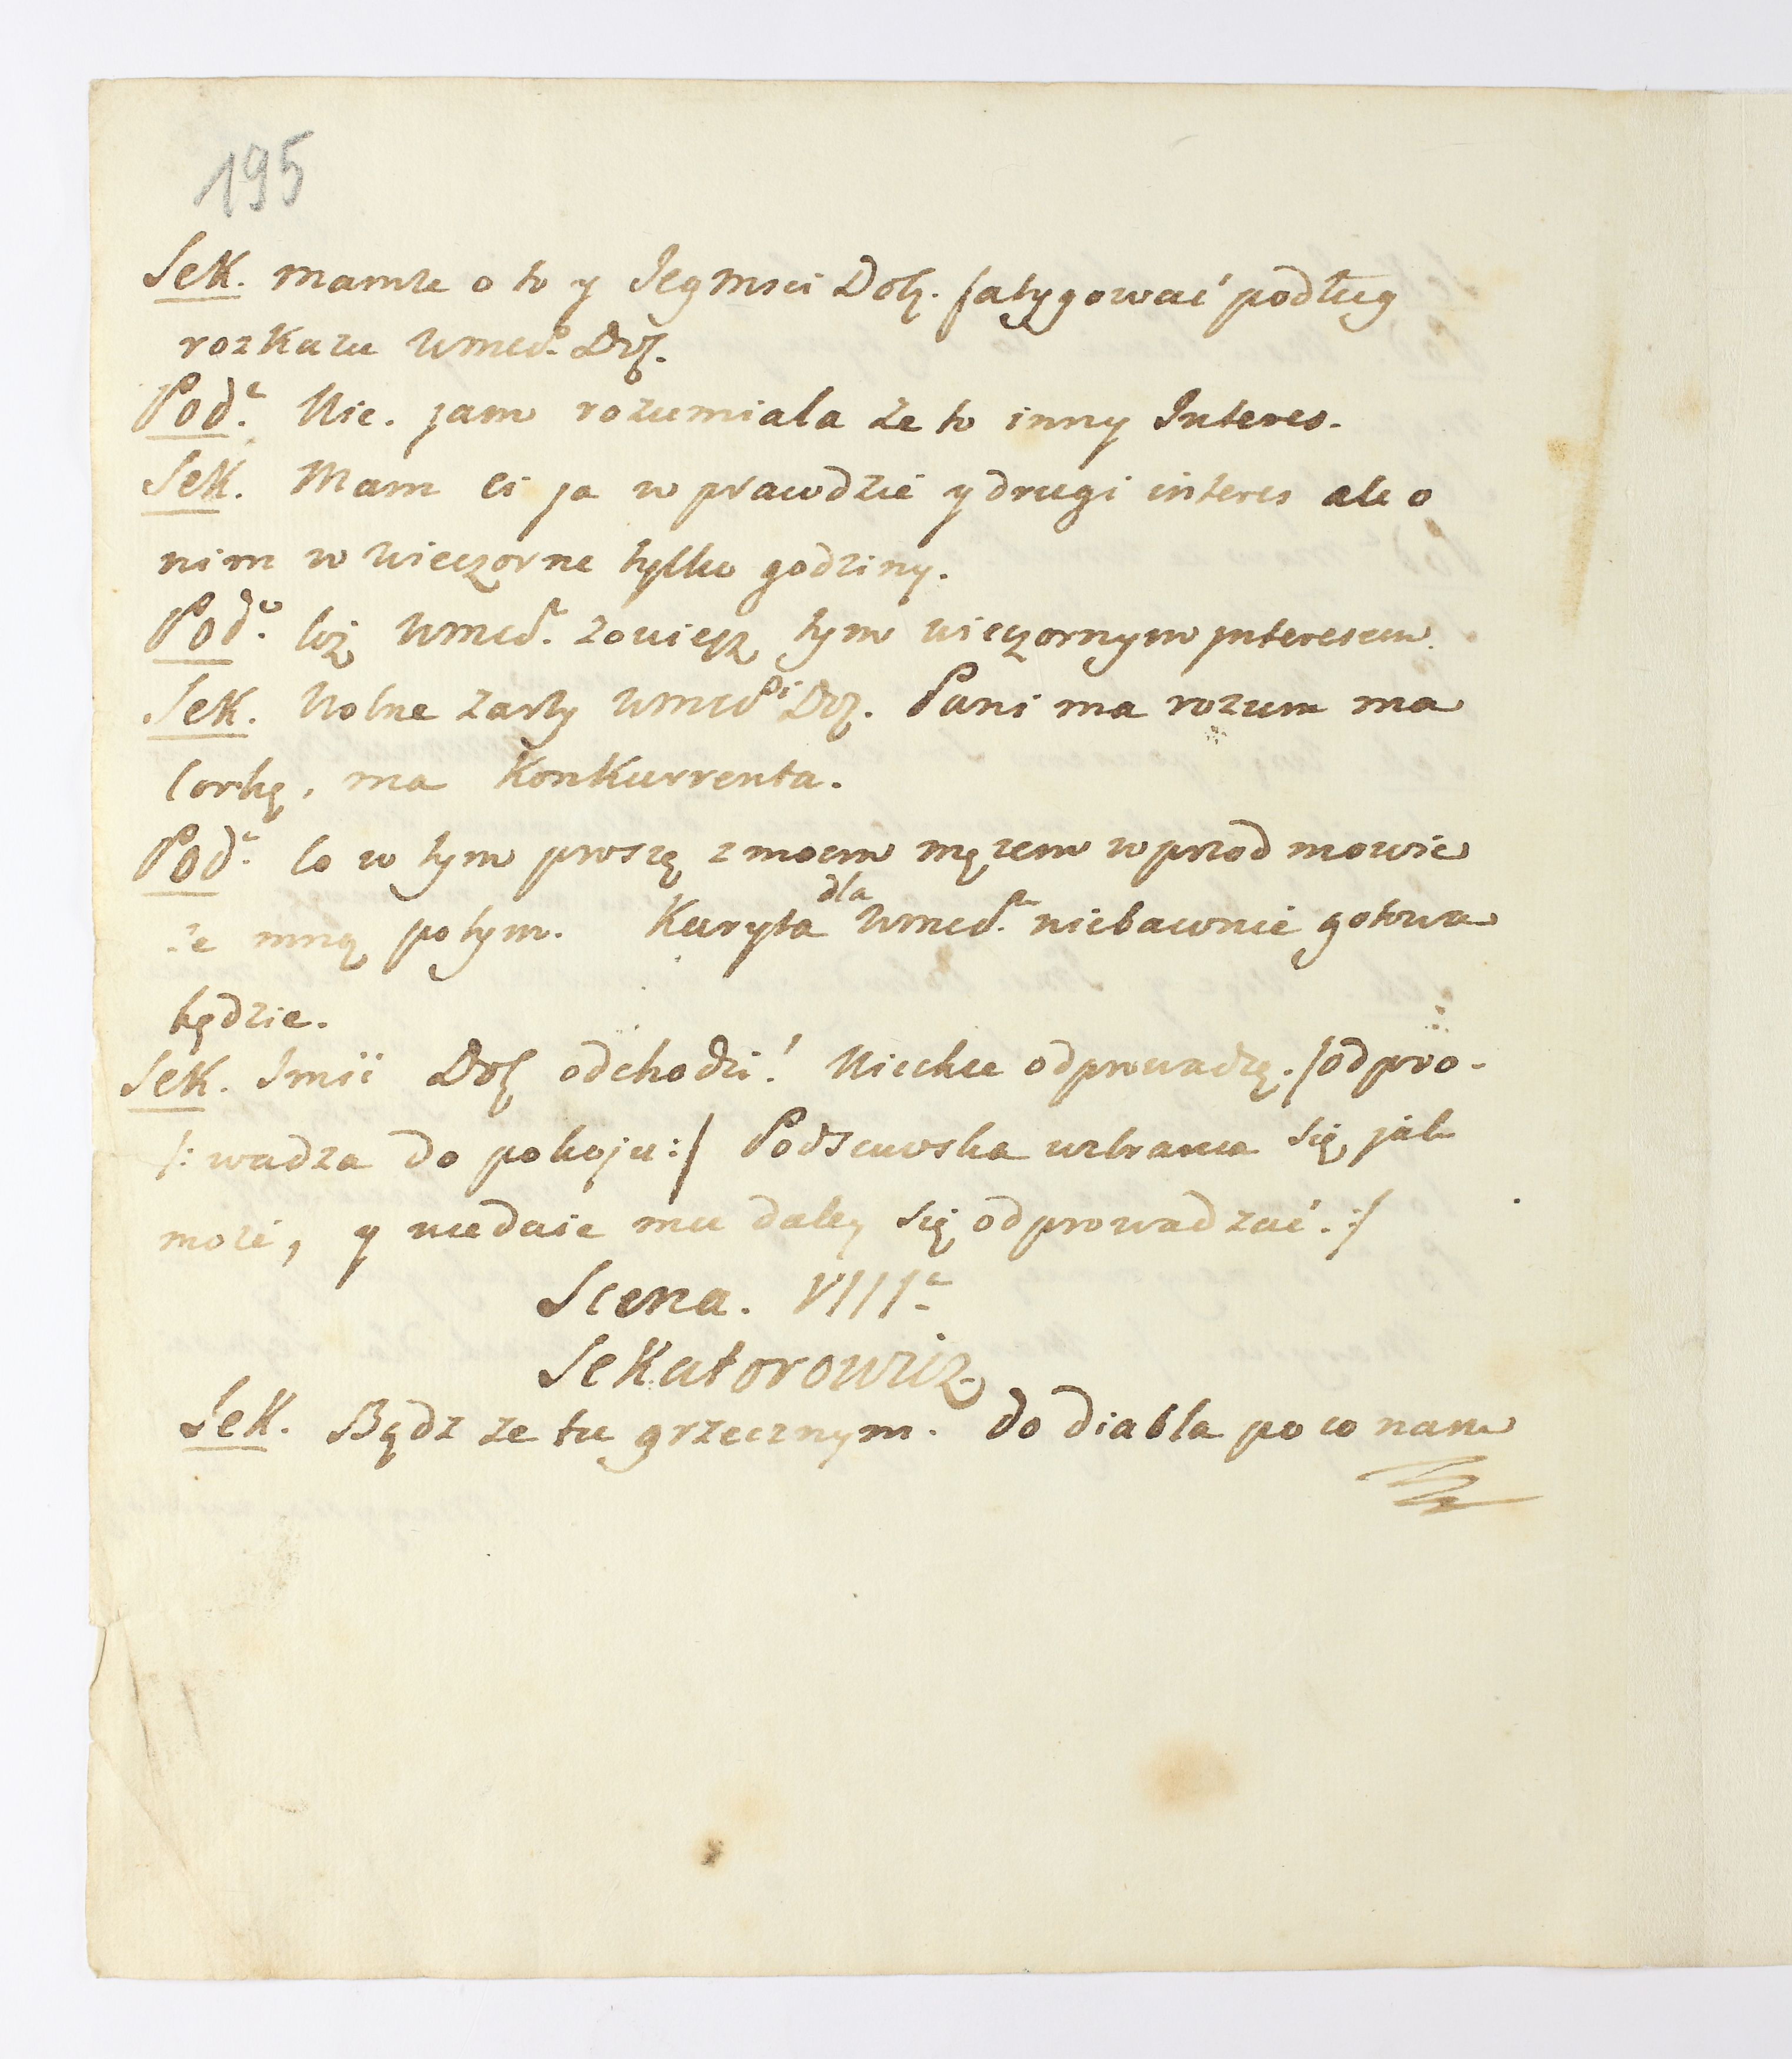 195
Sek. mamże o to y Jegmsci Dob. fatygować podług
rozkazu Wmcd. Dob.
Pod.a Nie. jam rozumiala że to inny Interes.
Sek. Mam ci ja w prawdzie y drugi interes ale o
nim w wieczorne tylko godziny.
Pod.a Coż Wmcd.a zowiesz tym wieczornym jnteresem.
Sek. Wolne żarty Wmcd.i Dob. Pani ma rozum ma
Corkę, ma Konkurrenta.
Pod.a Co w tym proszę z moim mężem wprzod mowić
ze mną potym. Karyta dla Wmcd.a niebawnie gotowa
będzie.
Sek. Jmci Dob odchodzi! Niechże odprowadzę. /odpro-
/: wadza do pokoju:/ Podscawska wzbrania się jak
może, y niedaie mu daley się odprowadzać.:/
Scena. VIII.a
Sekatorowicz.
Sek. Bądz że tu grzecznym. do diabła po co nam